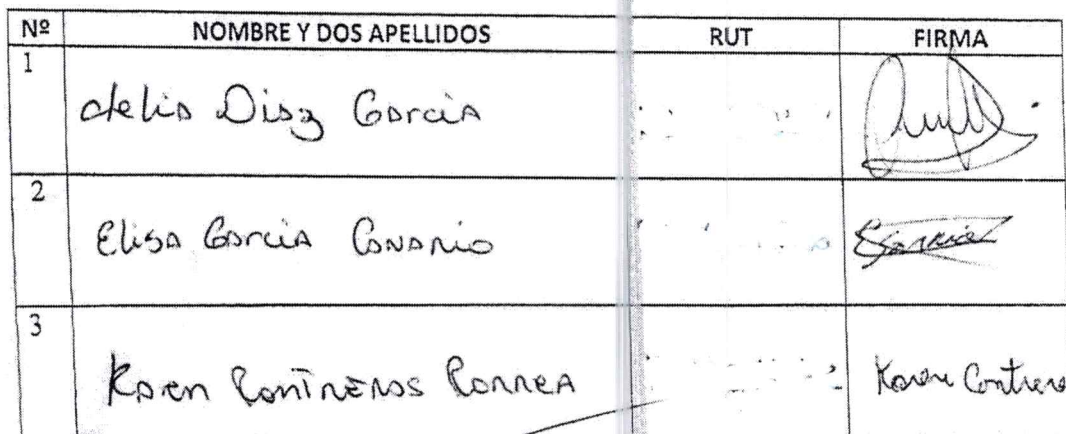 Nº NOMBRE Y DOS APELLIDOS RUT FIRMA
1 delia Diaz Garcia
2 Elisa Garcia Canario
3 Karen Contreras Correa Karen Contreras